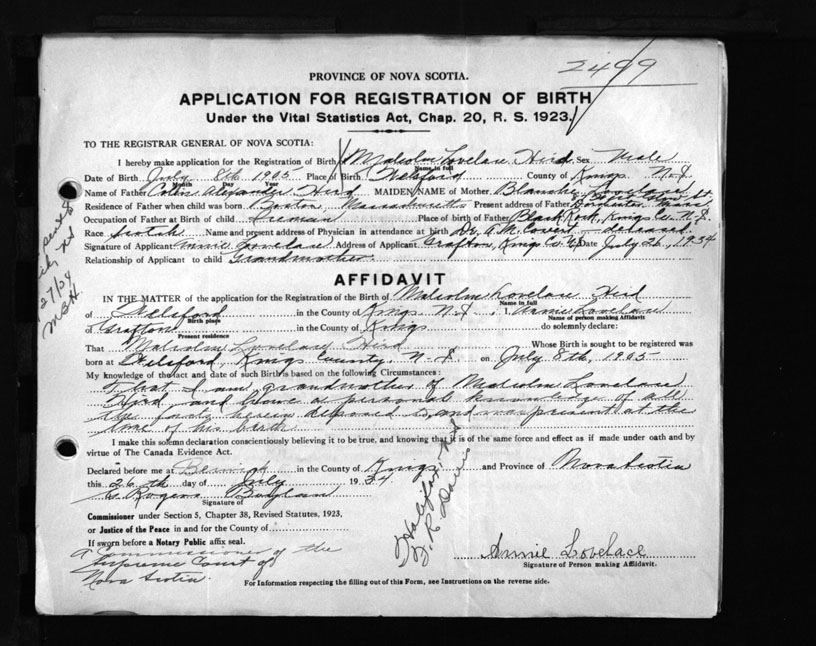 2499
PROVINCE OF NOVA SCOTIA.
APPLICATION FOR REGISTRATION OF BIRTH
Under the Vital Statistics Act, Chap. 20, R. S. 1923.
TO THE REGISTRAR GENERAL OF NOVA SCOTIA:
I hereby make application for the Registration of Birth Malcolm Lovelace Hird Sex Male
Name in full
Date of Birth July 8th 1905 Place of Birth Welsford County of Kings N.S.
Month Day Year
Name of Father Colin Alexander Hird MAIDEN Name of Mother Blanche Lovelace
Residence of Father when child was born Boston Massachusetts Present address of Father Dorchester
Occupation of Father at Birth of child Fireman Place of birth of Father Black Rock, Kings Co. N.S.
Race Scotch Name and present address of Physician in attendance at birth Dr. A.M. Covert - deceased
Signature of Applicant Annie Lovelace Address of Applicant Grafton, Kings Co. N.S. Date July 26, 1934
Relationship of Applicant to child Grandmother
AFFIDAVIT
IN THE MATTER of the application for the Registration of the Birth of Malcolm Lovelace Hird
Name in full
of Welsford in the County of Kings N.S. I, Annie Lovelace
Birth place Name of person making Affidavit
of Grafton in the County of Kings do solemnly declare:
Present residence
That Malcolm Lovelace Hird Whose Birth is sought to be registered was
born at Welsford, Kings County, N.S. on July 8th, 1905
My knowledge of the fact and date of such Birth is based on the following Circumstances:
That I am grandmother of Malcolm Lovelace
Hird and have a personal knowledge of all
the facts herein deposed to, and was present at the
time of his birth.
I make this solemn declaration conscientiously believing it to be true, and knowing that it is of the same force and effect as if made under oath and by
virtue of The Canada Evidence Act.
Declared before me at Berwick in the County of Kings and Province of Nova Scotia
this 26th day of July 1934
Rogers
Signature of
Commissioner under Section 5, Chapter 38, Revised Statutes, 1923,
or Justice of the Peace in and for the County of
If sworn before a Notary Public affix seal.
A Commissioner of the
Supreme Court of
Nova Scotia.
Halifax N.S.
Annie Lovelace
Signature of Person making Affidavit.
For Information respecting the filling out of this Form, see Instructions on the reverse side.